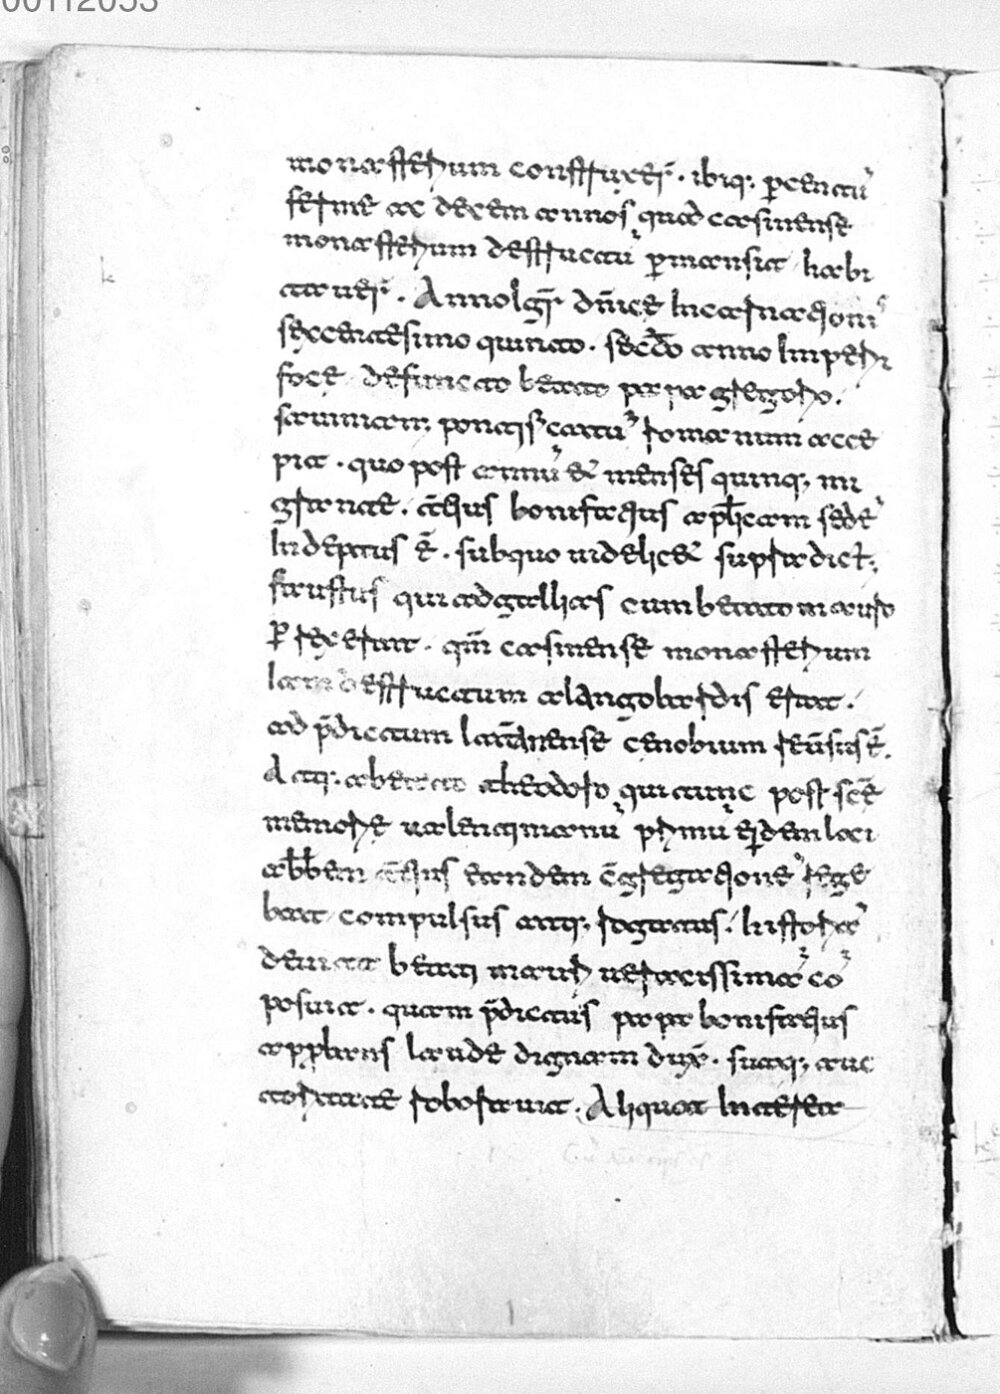 00112053
monasterium construxer̄. ibiq; p̲centũ
ferme ac decem annos quad casinense
monasterium destructũ p̲mansit habi
tauer̄. Anno igr̄ dñice Incarnationis
sexcentesimo quinto. sec̄do anno Imperii
foce defuncto beato papa gregorio.
sauinian; pontif̄catũ romanum acce
pit. quo post annũ & menses quinq; mi
grante. tertius bonifatius aplicam sedẽ
Indeptus ē. sub quo uidelicet supradict;
faustus qui ad gallias cum beato mauro
p̲rexerat. qm̄ casinense monasterium
Iam destructum a langobardis erat.
ad p̄dictum lateranense cenobium reuersus ē.
Atq; a beato theodoro qui tunc post sc̄e
memorie ualentinianũ primũ eiusdem loci
abbem tertius eandem c̄gregationẽ rege
bat compulsus atq; rogatus. historiã
de uita beati mauri ueracissimã cõ
posuit. quam p̄dictus papa bonifatius
app̲bans laude dignam dux̄. suaq; auc
toritate roborauit. Aliquot Interea